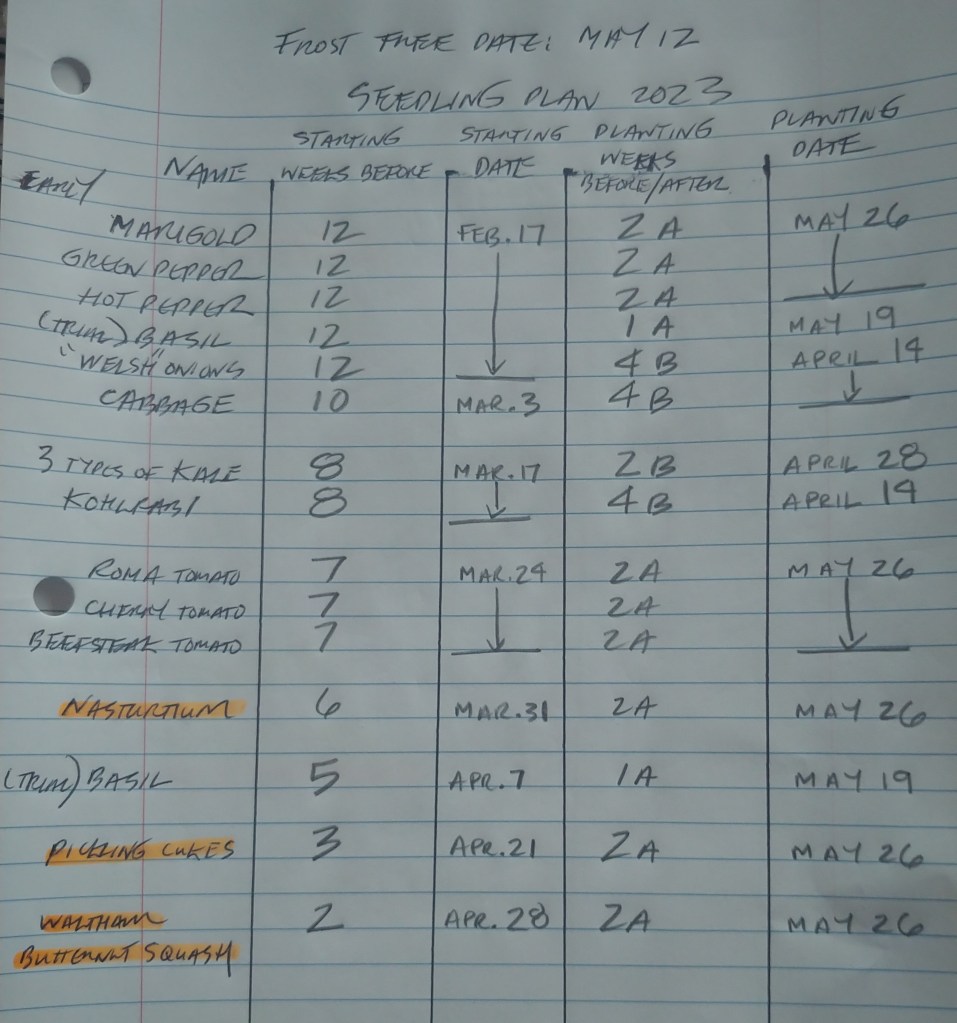 FROST FREE DATE: MAY 12
SEEDLING PLAN 2023
NAME STARTING WEEKS BEFORE STARTING DATE PLANTING WEEKS BEFORE/AFTER PLANTING DATE
EARLY
MARIGOLD 12 FEB. 17 2 A MAY 26
GREEN PEPPER 12 2 A
HOT PEPPER 12 2 A
(TRIM) BASIL 12 1 A MAY 19
"WELSH" ONIONS 12 4 B APRIL 14
CABBAGE 10 MAR. 3 4 B
3 TYPES OF KALE 8 MAR. 17 2 B APRIL 28
KOHLRABI 8 4 B APRIL 14
ROMA TOMATO 7 MAR. 24 2A MAY 26
CHERRY TOMATO 7 2A
BEEFSTEAK TOMATO 7 2A
NASTURTIUM 6 MAR. 31 2A MAY 26
(TRIM) BASIL 5 APR. 7 1A MAY 19
PICKLING CUKES 3 APR. 21 2A MAY 26
WALTHAM 2 APR. 28 2A MAY 26
BUTTERNUT SQUASH